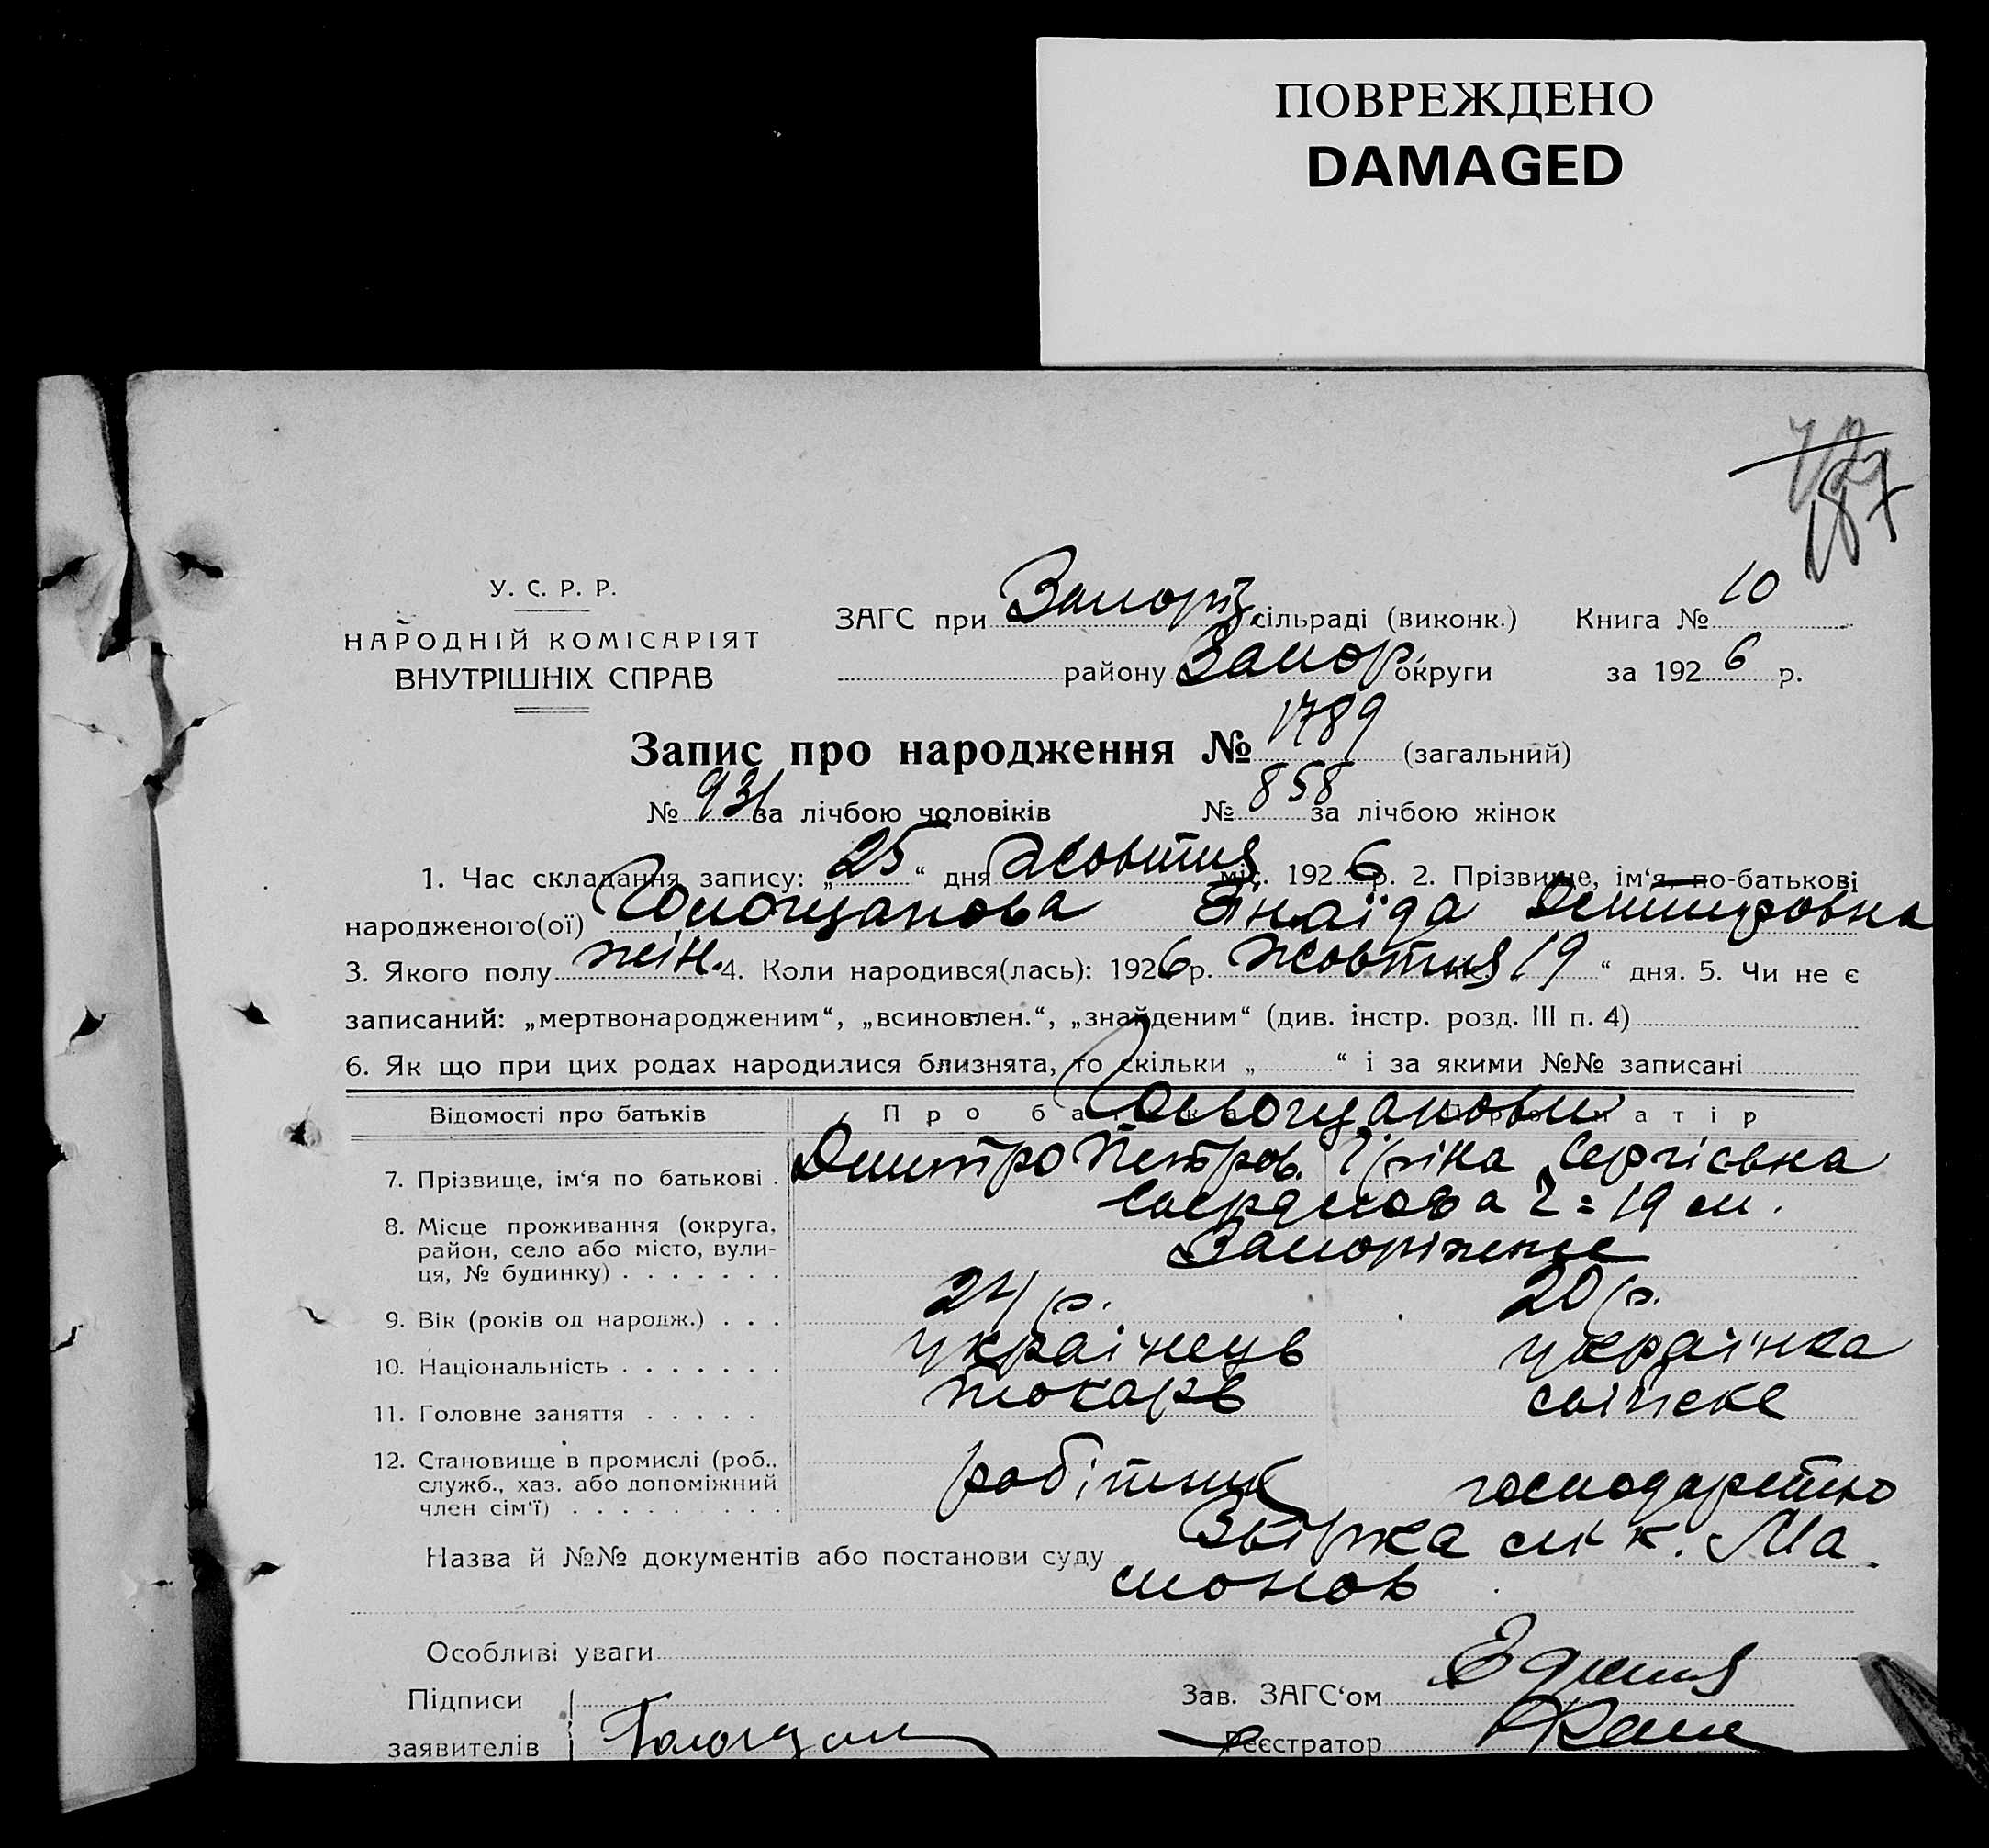 ПОВРЕЖДЕНО
DAMAGED
187
У. С. Р. Р.
НАРОДНІЙ КОМІСАРІЯТ
ВНУТРІШНІХ СПРАВ
ЗАГС при Запоріз. сільраді (виконк.) Книга № 10
району Запор. округи за 1926 р.
Запис про народження № 1789 (загальний)
№ 931 за лічбою чоловіків № 858 за лічбою жінок
1. Час складання запису: „25“ дня Жовтня міс. 1926 р. 2. Прізвище, ім‘я, по-батькові
народженого(ої) Голощапова Зінаїда Дмитровна
3. Якого полу жін. 4. Коли народився(лась): 1926 р. Жовтня 19 “ дня. 5. Чи не є
записаний: „мертвонародженим“, „всиновлен.“, „знайденим“ (див. інстр. розд. III п. 4)
6. Як що при цих родах народилися близнята, то скільки „ “ і за якими №№ записані
Відомості про батьків Про батька Про матір
Голощапови
7. Прізвище, ім‘я по батькові . Дмитро Петров. Ірина Сергієвна
8. Місце проживання (округа, район, село або місто, вулиця, № будинку) . . . . . . .
19 Запоріжжє
9. Вік (років од народж.) . . . 24 р. 20 р.
10. Національність . . . . . . . українець українка
11. Головне заняття . . . . . токарь сільске
12. Становище в промислі (роб., служб., хаз. або допоміжний член сім‘ї) . . . . . . . . . робітник господарство
Назва й №№ документів або постанови суду
Особливі уваги
Підписи Зав. ЗАГС‘ом
заявителів Реєстратор